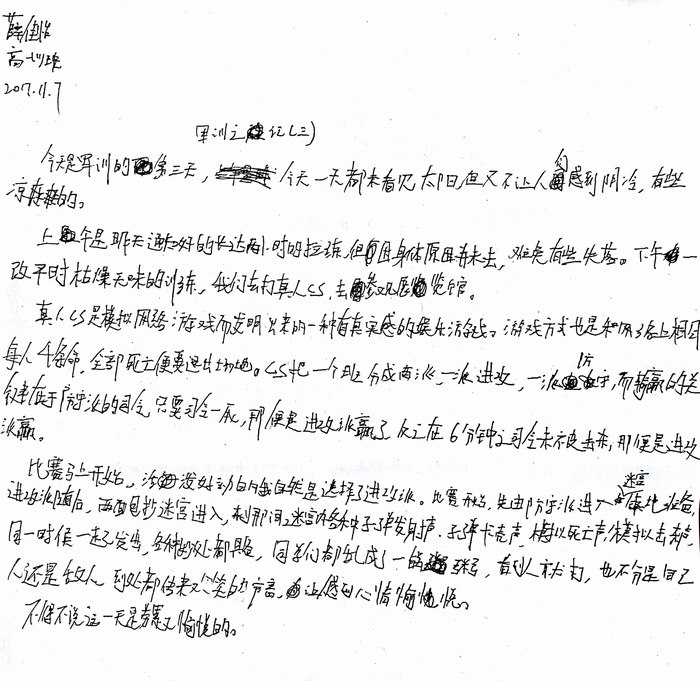 薛佳怡
高一(1)班
2017.11.7
军训之记(三)
今天是军训的第三天，今天一天都未看见太阳，但又不让人感到阴冷，有些
凉飕飕的。
上午是昨天通知好的长达两小时的拉练，但因身体原因未去，难免有些失落。下午一
改平时枯燥无味的训练，我们去打真人CS，去参观展览馆。
真人CS是模拟网络游戏而发明出来的一种有真实感的娱乐游戏。游戏方式也是和网络上相同
每人4条命，全部死亡便要退出场地。CS把一个班分成两派，一派进攻，一派防守，而输赢的关
键在于防守派的司令，只要司令一死，那便是进攻派赢了，反之在6分钟之司令未被击杀，那便是进攻
派赢。
比赛马上开始，活泼好动的我自然是选择了进攻派。比赛开始，先由防守派进入迷宫准备，
进攻派随后，两面包抄迷宫进入，刹那间，迷宫内各种子弹发射声，子弹卡壳声，模拟死亡声，模拟击杀声
同一时候一起发出，各种都具备，同学们都乱成了一锅粥，看到人就打，也不分是自己
人还是敌人，到处都传来欢笑的声音，让感到心情愉悦。
不得不说这一天是劳累又愉悦的。